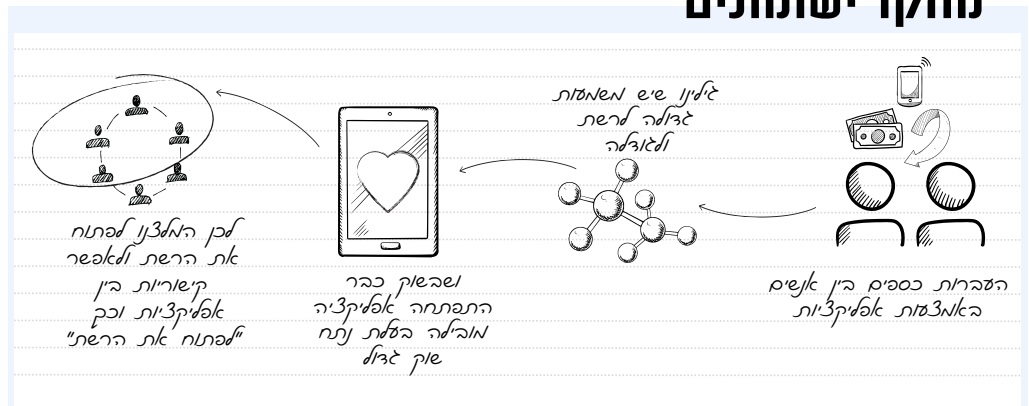 העברות כספים בין אנשים
באמצעות אפליקציות
גילינו שיש משמעות
גדולה לרשת
ולגודלה
ושבשוק כבר
התפתחה אפליקציה
מובילה בעלת נתח
שוק גדול
לכן המלצנו לפתוח
את הרשת ולאפשר
קישוריות בין
אפליקציות וכך
"לפתוח את הרשת"